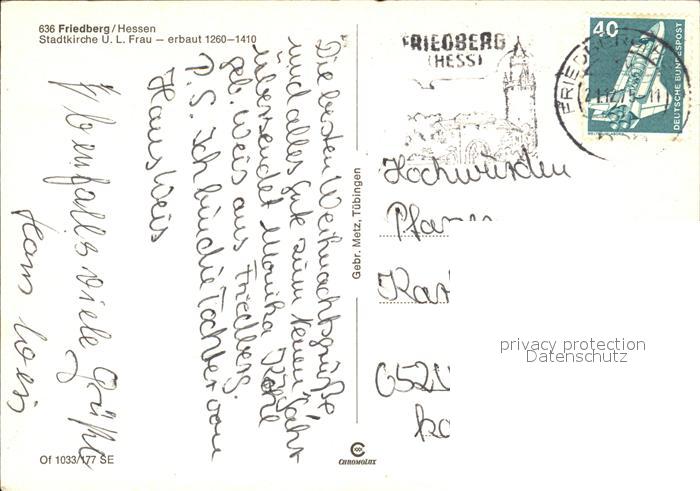 636 Friedberg/Hessen
Stadtkirche U. L. Frau — erbaut 1260—1410
Die besten Weihnachtsgrüße
und alles gute zum neuen Jahr
übersendet Monika
geb. Weis aus Friedberg.
P.S. Ich bin die Tochter von
Hans Weis
Ebenfalls viele Grüße
Hans Weis
Of 1033/177 SE
Gebr. Metz, Tübingen
CHROMOLUX
FRIEDBERG
(HESS)
FRIEDBERG
40
DEUTSCHE BUNDESPOST
Hochwürden
privacy protection
Datenschutz